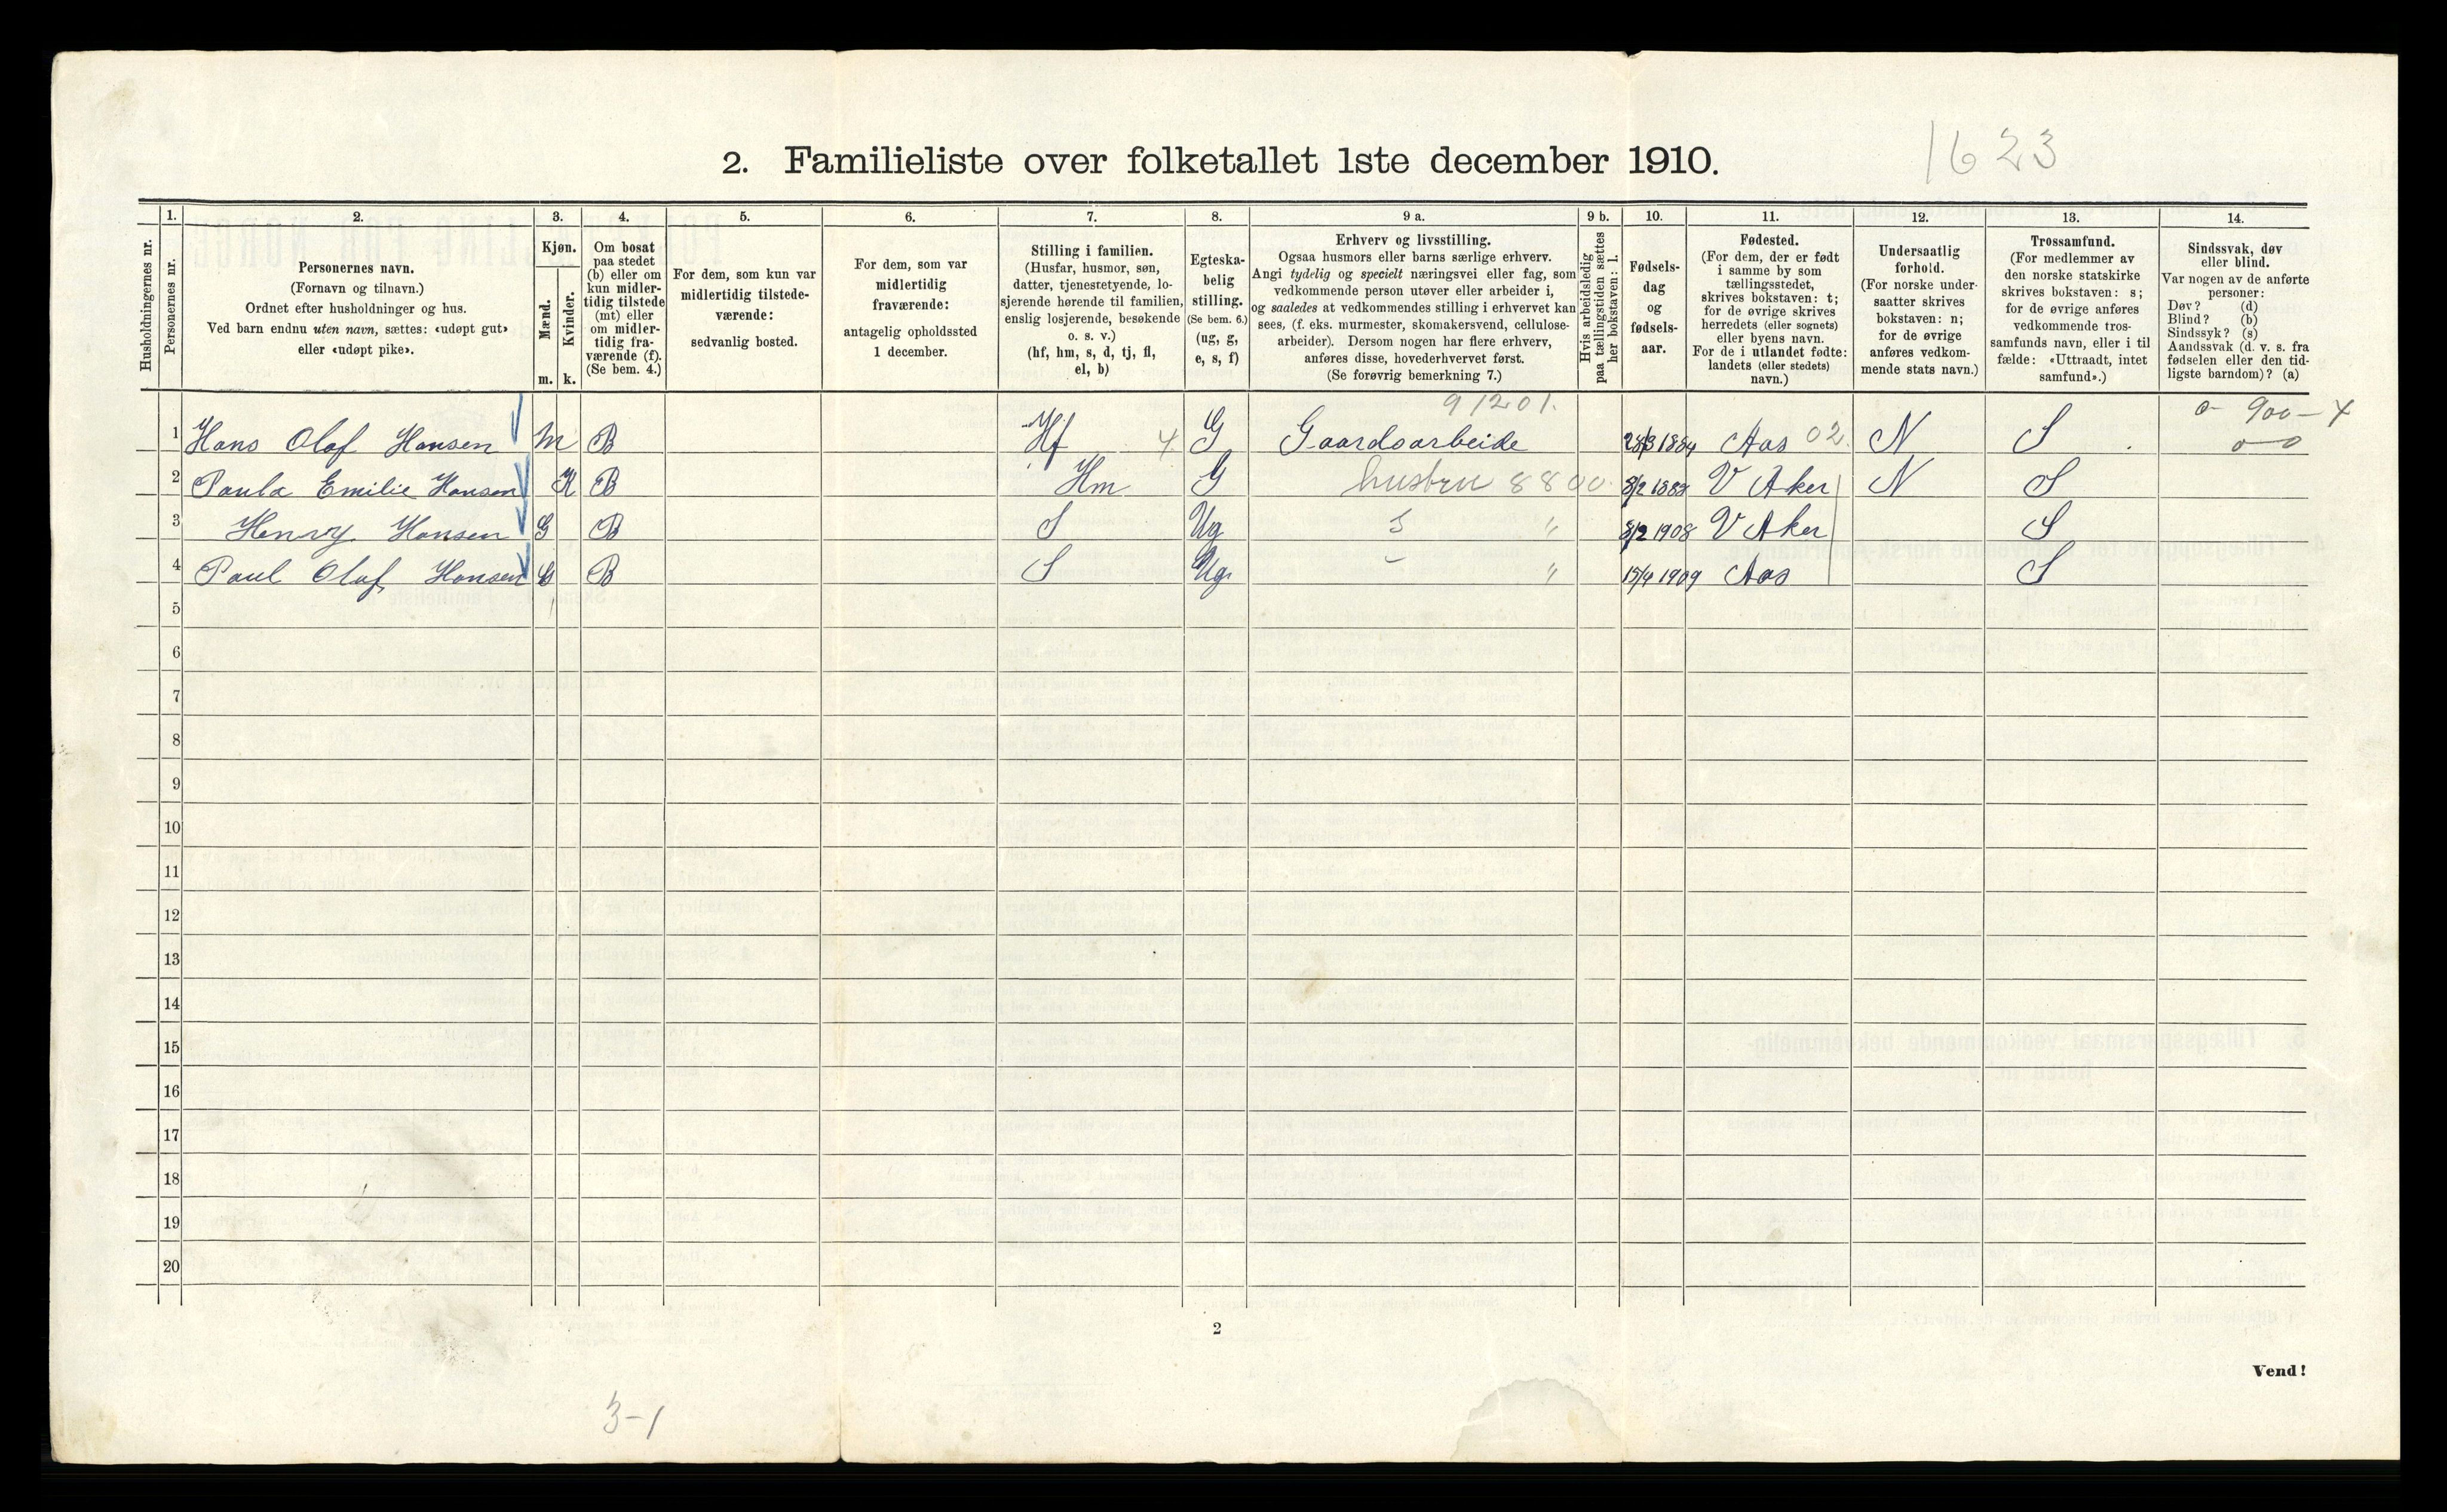 1623
2. Familieliste over folketallet 1ste december 1910.
Husholdningernes nr.
1.
Personernes nr.
2.
Personernes navn.
(Fornavn og tilnavn.)
Ordnet efter husholdninger og hus.
Ved barn endnu uten navn, sættes: «udøpt gut»
eller «udøpt pike».
3.
Kjøn.
Mænd.
Kvinder.
m. k.
4.
Om bosat
paa stedet
(b) eller om
kun midler-
tidig tilstede
(mt) eller
om midler-
tidig fra-
værende (f).
(Se bem. 4.)
5.
For dem, som kun var
midlertidig tilstede-
værende:
sedvanlig bosted.
6.
For dem, som var
midlertidig
fraværende:
antagelig opholdssted
1 december.
7.
Stilling i familien.
(Husfar, husmor, søn,
datter, tjenestetyende, lo-
sjerende hørende til familien,
enslig losjerende, besøkende
o. s. v.)
(hf, hm, s, d, tj, fl,
el, b)
8.
Egteska-
belig
stilling.
(Se bem. 6.)
(ug, g,
e, s, f)
9 a.
Erhverv og livsstilling.
Ogsaa husmors eller barns særlige erhverv.
Angi tydelig og specielt næringsvei eller fag, som
vedkommende person utøver eller arbeider i,
og saaledes at vedkommendes stilling i erhvervet kan
sees, (f. eks. murmester, skomakersvend, cellulose-
arbeider). Dersom nogen har flere erhverv,
anføres disse, hovederhvervet først.
(Se forøvrig bemerkning 7.)
9 b.
Hvis arbeidsledig
paa tællingstiden sættes
her bokstaven: l.
10.
Fødsels-
dag
og
fødsels-
aar.
11.
Fødested.
(For dem, der er født
i samme by som
tællingsstedet,
skrives bokstaven: t;
for de øvrige skrives
herredets (eller sognets)
eller byens navn.
For de i utlandet fødte:
landets (eller stedets)
navn.)
12.
Undersaatlig
forhold.
(For norske under-
saatter skrives
bokstaven: n;
for de øvrige
anføres vedkom-
mende stats navn.)
13.
Trossamfund.
(For medlemmer av
den norske statskirke
skrives bokstaven: s;
for de øvrige anføres
vedkommende tros-
samfunds navn, eller i til
fælde: «Uttraadt, intet
samfund».)
14.
Sindssvak, døv
eller blind.
Var nogen av de anførte
personer:
Døv? (d)
Blind? (b)
Sindssyk? (s)
Aandssvak (d. v. s. fra
fødselen eller den tid-
ligste barndom)? (a)
91201. 0- 900- 4
1 Hans Olaf Hansen m B Hf 4 G Gaardsarbeide 1884 Aas 02. N S 0-0
2 Paula Emilie Hansen K B Hm G hustru 8800. 8/2 V Aker N S
3 Henry Hansen G B S Ug S " 8/2 1908 V Aker S
4 Paul Olaf Hansen G B S Ug. - " 15/4 1909 Aas S
5
6
7
8
9
10
11
12
13
14
15
16
17
18
19
20
2
Vend!
3-1